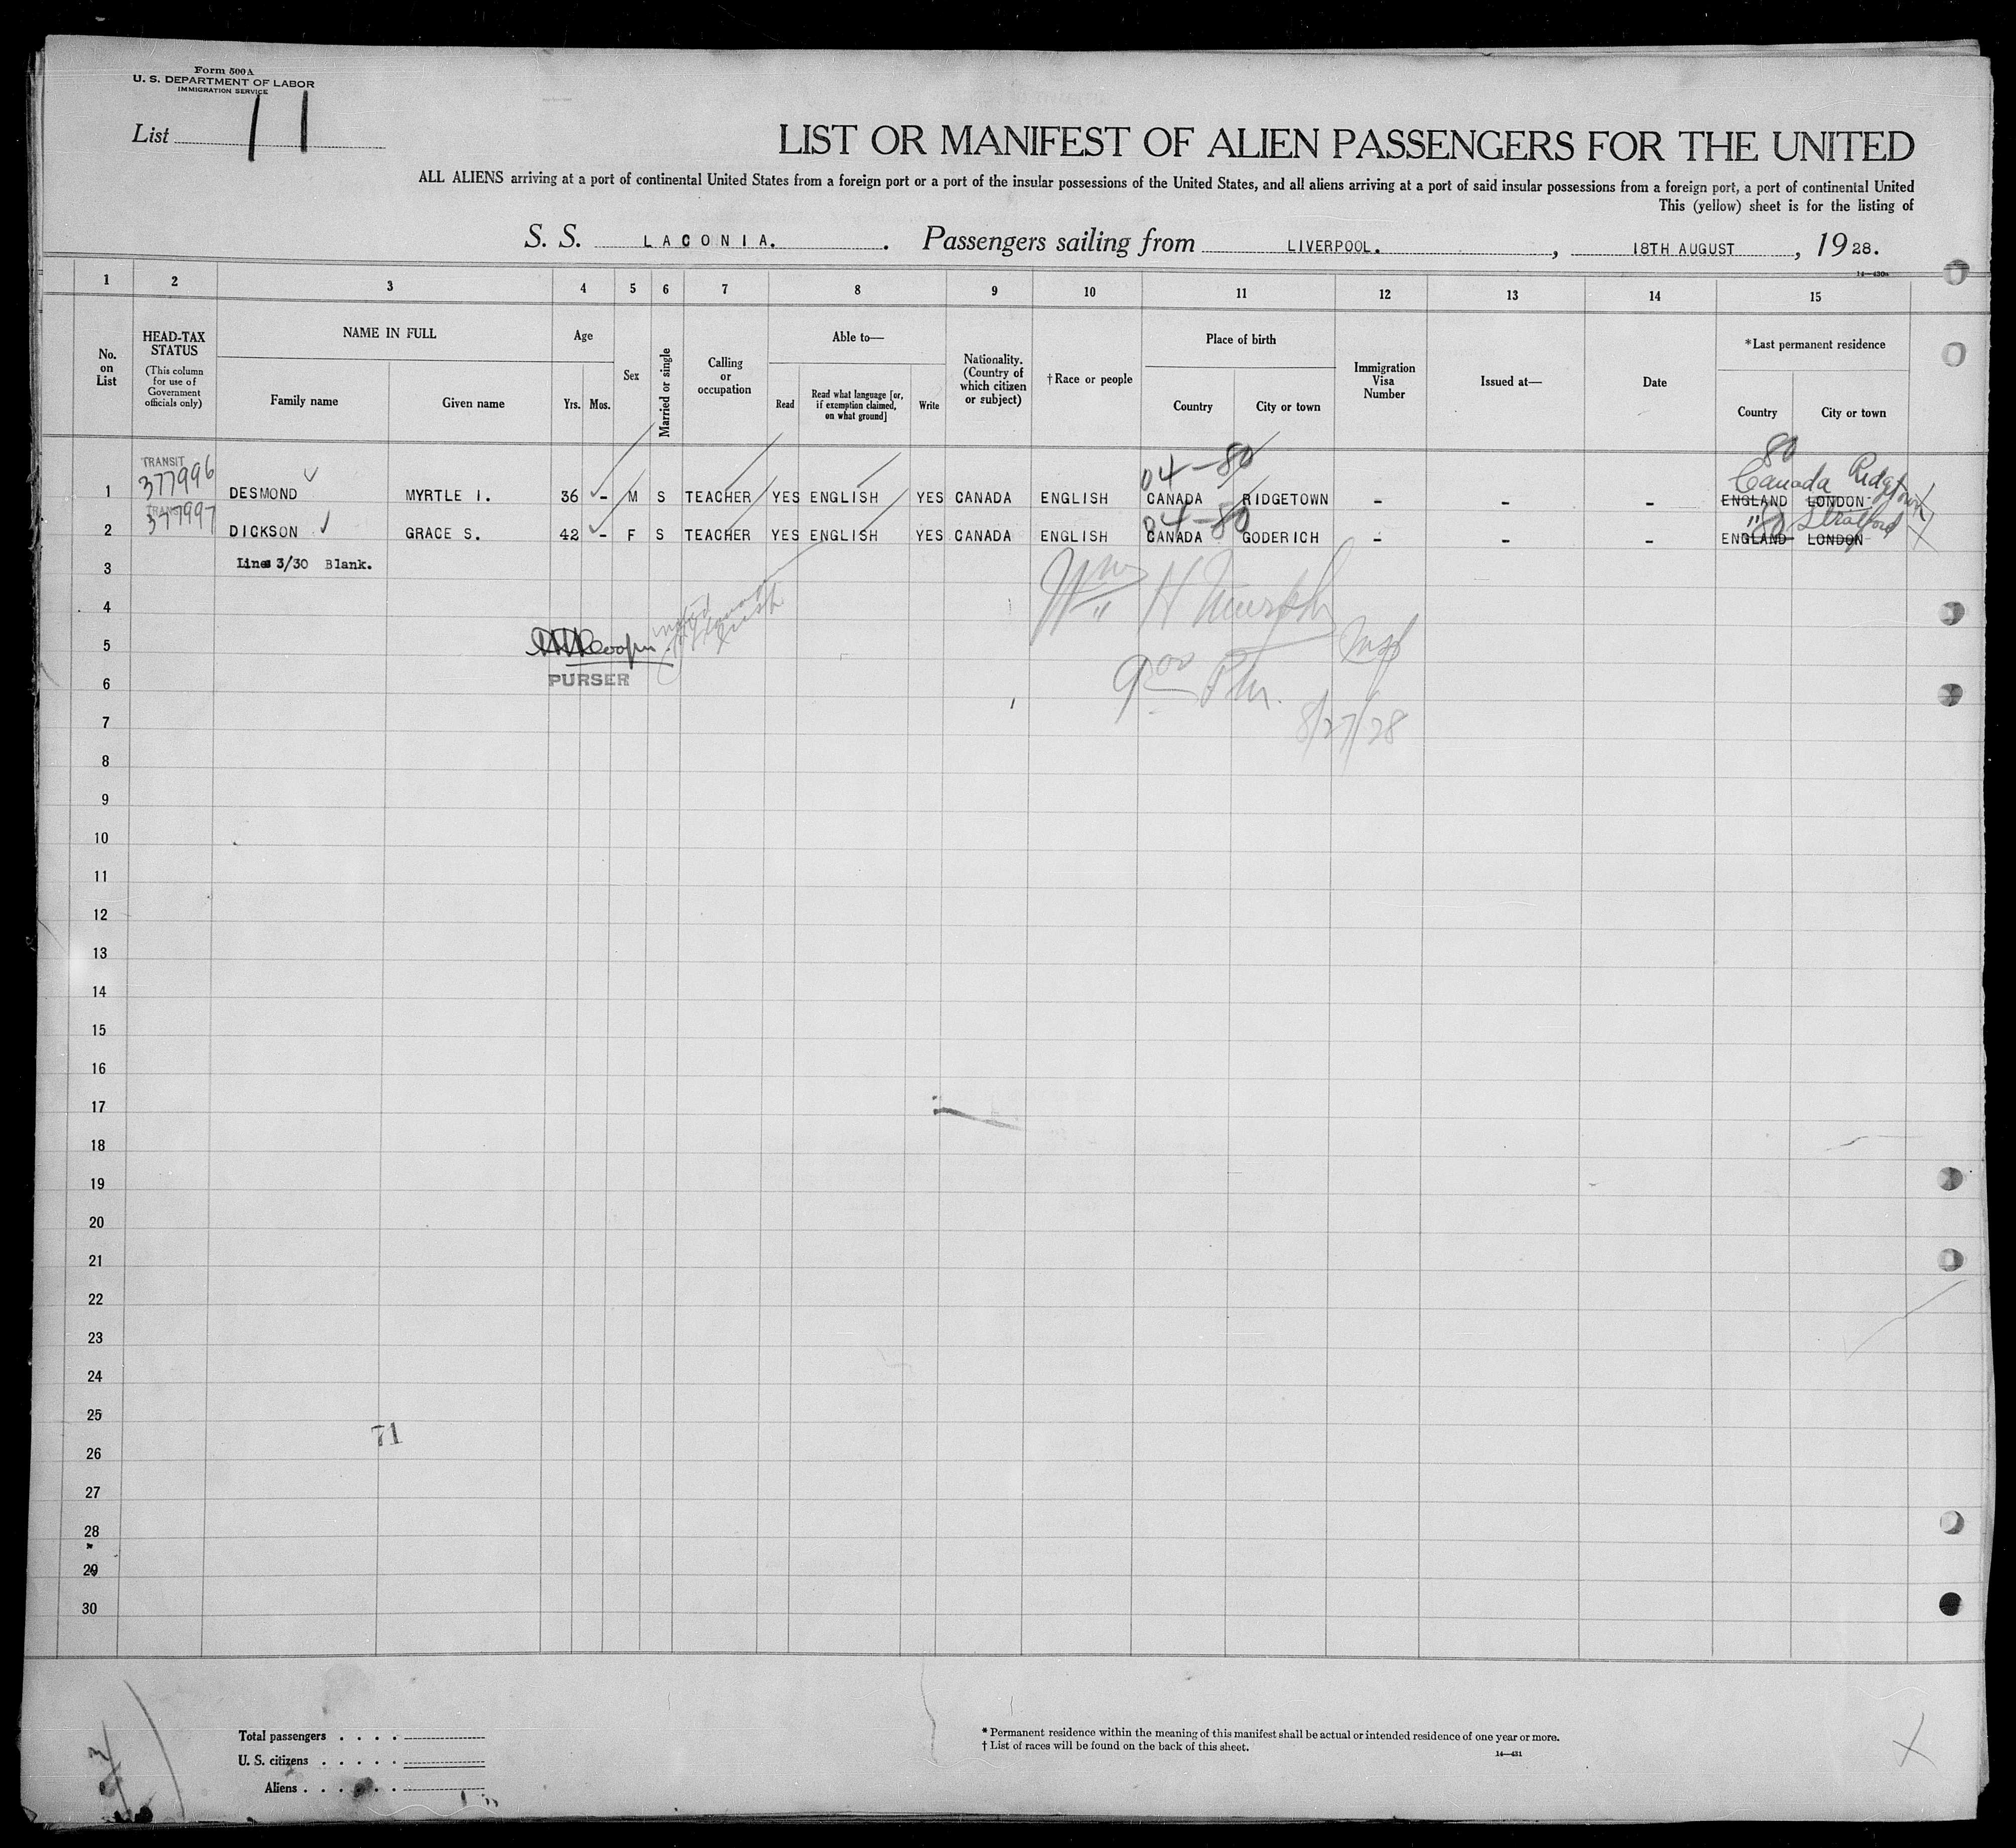 Form 500A
U. S. DEPARTMENT OF LABOR
IMMIGRATION SERVICE
List 11
LIST OR MANIFEST OF ALIEN PASSENGERS FOR THE UNITED
ALL ALIENS arriving at a port of continental United States from a foreign port or a port of the insular possessions of the United States, and all aliens arriving at a port of said insular possessions from a foreign port, a port of continental United
This (yellow) sheet is for the listing of
S. S. LACONIA. . Passengers sailing from LIVERPOOL. , 18TH AUGUST , 1928.
14—430a
1 2 3 4 5 6 7 8 9 10 11 12 13 14 15
No. on List
HEAD-TAX STATUS
(This column for use of Government officials only)
NAME IN FULL
Family name Given name
Age
Yrs. Mos.
Sex
Married or single
Calling or occupation
Able to—
Read
Read what language [or, if exemption claimed, on what ground]
Write
Nationality. (Country of which citizen or subject)
†Race or people
Place of birth
Country City or town
Immigration Visa Number
Issued at—
Date
*Last permanent residence
Country City or town
04—80 80
TRANSIT
377996 Canada Ridgetown
1 DESMOND MYRTLE I. 36 - M S TEACHER YES ENGLISH YES CANADA ENGLISH CANADA RIDGETOWN - - - ENGLAND LONDON
TRANSIT
377997 04—80 " 80 Stratford
2 DICKSON GRACE S. 42 - F S TEACHER YES ENGLISH YES CANADA ENGLISH CANADA GODERICH - - - ENGLAND LONDON
3 Lines 3/30 Blank.
4
Wm H Murphy
5
PURSER
6
9 00 Pm.
7
8/27/28
8
9
10
11
12
13
14
15
16
17
18
19
20
21
22
23
24
25
71
26
27
28
29
30
Total passengers . . . .
U. S. citizens . . . . .
Aliens . . . . .
* Permanent residence within the meaning of this manifest shall be actual or intended residence of one year or more.
† List of races will be found on the back of this sheet.
14—431